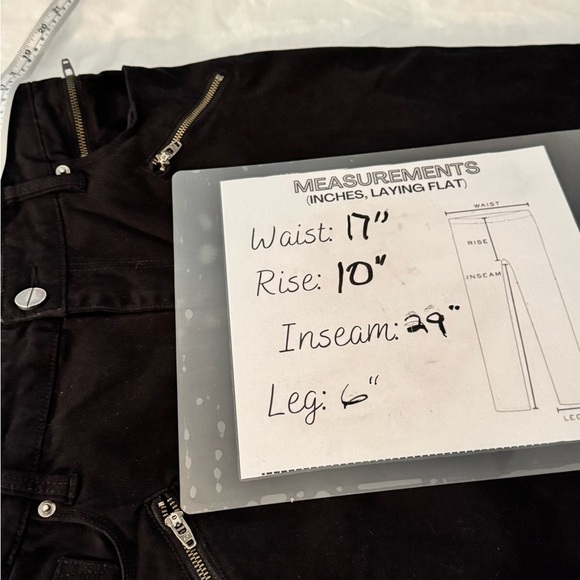 MEASUREMENTS
(INCHES, LAYING FLAT)
Waist: 17"
Rise: 10"
Inseam: 29"
Leg: 6"
WAIST
RISE
INSEAM
19 20 21